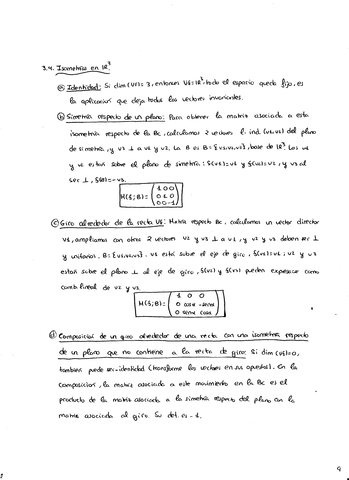 3.4. Isometrías en ℝ³
ⓐ Identidad: Si dim(Vf)=3, entonces Vf=ℝ³ todo el espacio queda fijo, es
la aplicación que deja todos los vectores invariantes.
ⓑ Simetría respecto de un plano: Para obtener la matriz asociada a esta
isometría respecto de la Bc, calculamos 2 vectores l. ind. (v1,v2) del plano
de simetría, y v3 ⊥ a v1 y v2. La B es B={v1,v2,v3}, base de ℝ³. Los v1
y v2 están sobre el plano de simetría: f(v1)=v1 y f(v2)=v2, y v3 al
ser ⊥, f(v3)=-v3.
M(f;B)= (1 0 0
0 1 0
0 0 -1)
ⓒ Giro alrededor de la recta Vf: Matriz respecto Bc, calculamos un vector director
v1, ampliamos con otros 2 vectores v2 y v3 ⊥ a v1, y v2 y v3 deben ser ⊥
y unitarios. B={v1,v2,v3}. v1 está sobre el eje de giro, f(v1)=v1, v2 y v3
están sobre el plano ⊥ al eje de giro, f(v2) y f(v3) pueden expresarse como
comb. lineal de v2 y v3.
M(f;B)= (1 0 0
0 cosα -senα
0 senα cosα)
ⓓ Composición de un giro alrededor de una recta con una isometría respecto
de un plano que no contiene a la recta de giro: Si dim(Vf)=0,
también puede ser -identidad (transforma los vectores en sus opuestos). En la
composición, la matriz asociada a este movimiento en la Bc es el
producto de la matriz asociada a la simetría respecto del plano con la
matriz asociada al giro. Su det. es -1.
9